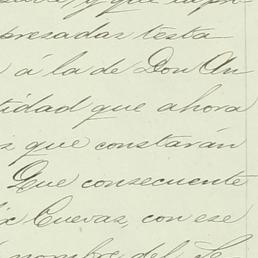 y que
presadas testa
á la de Don An
tidad que ahora
s que constarán
Que consecuente
Cuevas, con ese
nombre del Se-